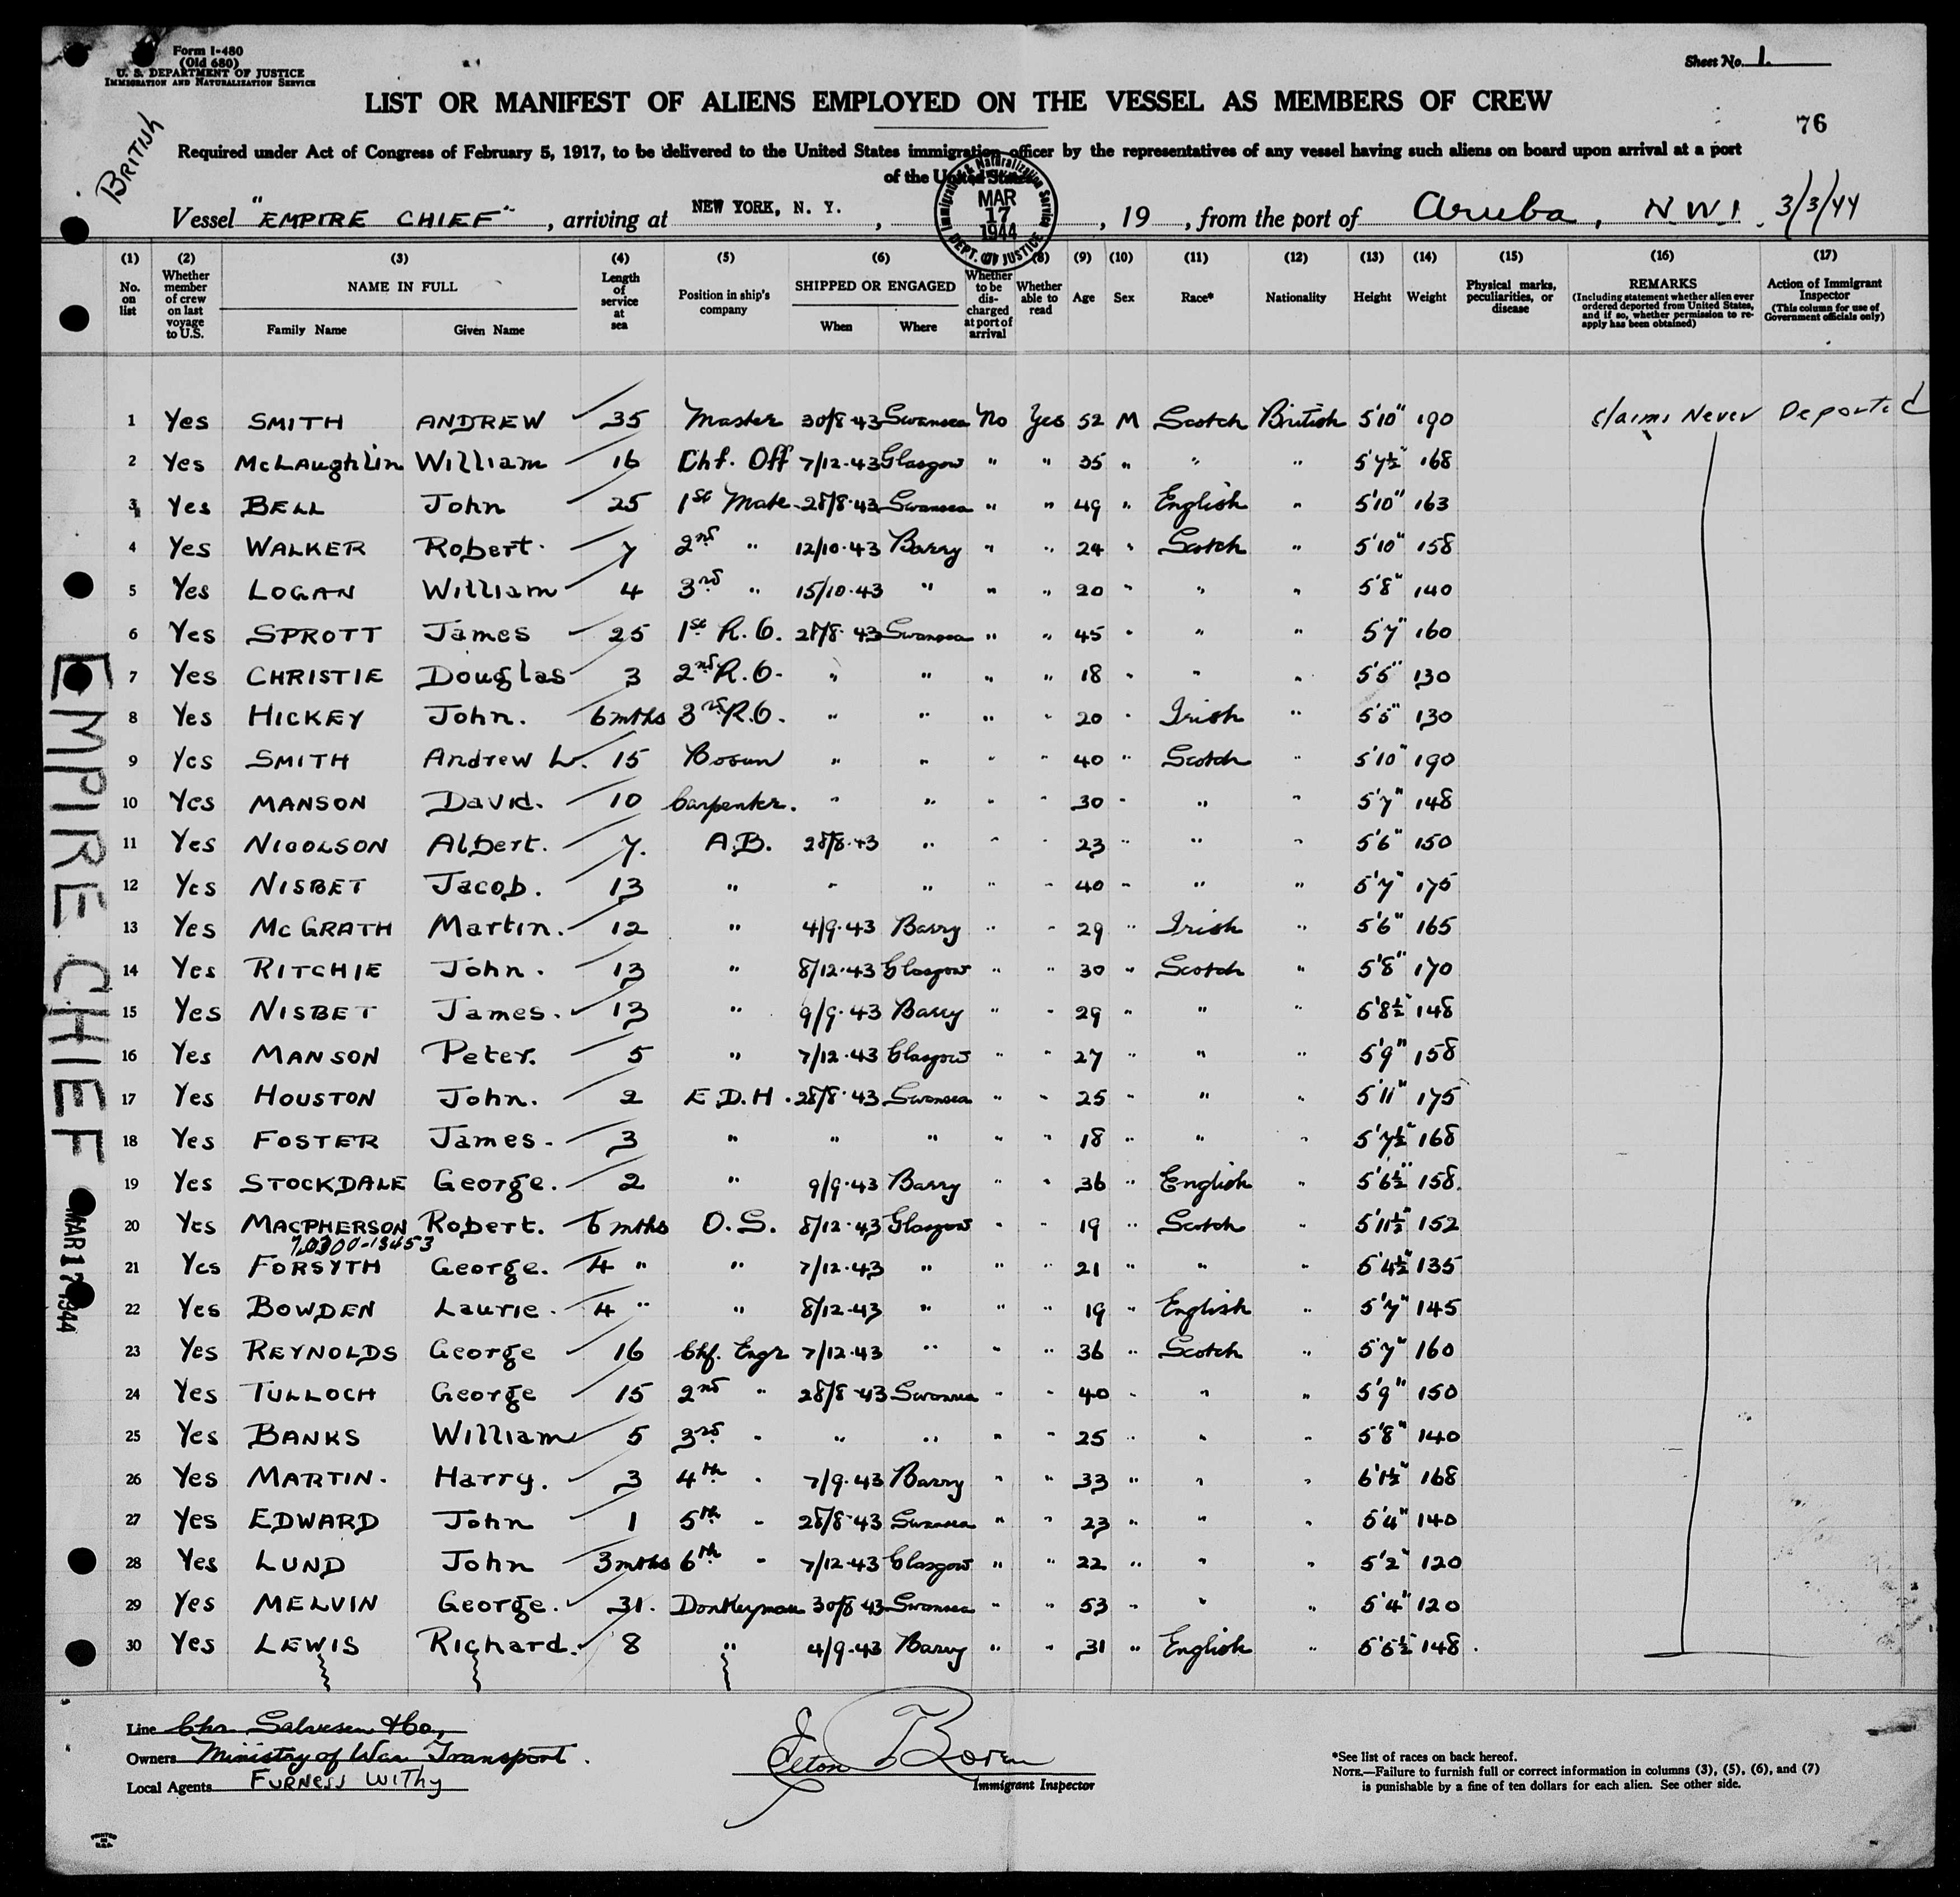 Form I-480
(Old 680)
U. S. DEPARTMENT OF JUSTICE
IMMIGRATION AND NATURALIZATION SERVICE
Sheet No. 1.
LIST OR MANIFEST OF ALIENS EMPLOYED ON THE VESSEL AS MEMBERS OF CREW
76
BRITISH
Required under Act of Congress of February 5, 1917, to be delivered to the United States immigration officer by the representatives of any vessel having such aliens on board upon arrival at a port
of the United States
Immigration & Naturalization Service MAR 17 1944 DEPT. OF JUSTICE
Vessel "EMPIRE CHIEF", arriving at NEW YORK, N. Y., , 19 , from the port of Aruba, N W I. 3/3/44
(1) (2) (3) (4) (5) (6) (7) (8) (9) (10) (11) (12) (13) (14) (15) (16) (17)
No. on list
Whether member of crew on last voyage to U.S.
NAME IN FULL
Family Name Given Name
Length of service at sea
Position in ship's company
SHIPPED OR ENGAGED
When Where
Whether to be discharged at port of arrival
Whether able to read
Age Sex Race* Nationality Height Weight
Physical marks, peculiarities, or disease
REMARKS
(Including statement whether alien ever ordered deported from United States, and if so, whether permission to reapply has been obtained)
Action of Immigrant Inspector
(This column for use of Government officials only)
1 Yes SMITH ANDREW 35 Master 30/8 43 Swansea No Yes 52 M Scotch British 5'10" 190 Claims Never Deported
2 Yes McLaughlin William 16 Chf. Off 7/12.43 Glasgow " " 35 " " " 5'7½" 168
3 Yes BELL John 25 1st Mate 28/8.43 Swansea " " 49 " English " 5'10" 163
4 Yes WALKER Robert. 7 2nd " 12/10.43 Barry " " 24 " Scotch " 5'10" 158
5 Yes LOGAN William 4 3rd " 15/10.43 " " " 20 " " " 5'8" 140
6 Yes SPROTT James 25 1st R.O. 28/8.43 Swansea " " 45 " " " 5'7" 160
7 Yes CHRISTIE Douglas 3 2nd R.O. " " " " 18 " " " 5'5" 130
8 Yes HICKEY John. 6 mths 3rd R.O. " " " " 20 " Irish " 5'5" 130
9 Yes SMITH Andrew L. 15 Bosun " " " " 40 " Scotch " 5'10" 190
10 Yes MANSON David. 10 Carpenter. " " " " 30 " " " 5'7" 148
11 Yes NICOLSON Albert. 7. A.B. 28/8.43 " " " 23 " " " 5'6" 150
12 Yes NISBET Jacob. 13 " " " " " 40 " " " 5'7" 175
13 Yes McGRATH Martin. 12 " 4/9.43 Barry " " 29 " Irish " 5'6" 165
14 Yes RITCHIE John. 13 " 8/12.43 Glasgow " " 30 " Scotch " 5'8" 170
15 Yes NISBET James. 13 " 9/9.43 Barry " " 29 " " " 5'8½" 148
16 Yes MANSON Peter. 5 " 7/12.43 Glasgow " " 27 " " " 5'9" 158
17 Yes HOUSTON John. 2 E.D.H. 28/8.43 Swansea " " 25 " " " 5'11" 175
18 Yes FOSTER James. 3 " " " " " 18 " " " 5'7½" 168
19 Yes STOCKDALE George. 2 " 9/9.43 Barry " " 36 " English " 5'6½" 158.
20 Yes MACPHERSON Robert. 6 mths O.S. 8/12.43 Glasgow " " 19 " Scotch " 5'11½" 152
21 Yes FORSYTH George. 4 " " 7/12.43 " " " 21 " " " 5'4½" 135
22 Yes BOWDEN Laurie. 4 " " 8/12.43 " " " 19 " English " 5'7" 145
23 Yes REYNOLDS George 16 Chf. Engr 7/12.43 " " " 36 " Scotch " 5'7" 160
24 Yes TULLOCH George 15 2nd " 28/8.43 Swansea " " 40 " " " 5'9" 150
25 Yes BANKS William 5 3rd " " " " " 25 " " " 5'8" 140
26 Yes MARTIN. Harry. 3 4th " 7/9.43 Barry " " 33 " " " 6'1½" 168
27 Yes EDWARD John 1 5th " 28/8.43 Swansea " " 23 " " " 5'4" 140
28 Yes LUND John 3 mths 6th " 7/12.43 Glasgow " " 22 " " " 5'2" 120
29 Yes MELVIN George. 31. Donkeyman 30/8 43 Swansea " " 53 " " " 5'4" 120
30 Yes LEWIS Richard. 8 " 4/9.43 Barry " " 31 " English " 5'5½" 148.
EMPIRE CHIEF
MAR 17 1944
Line Chr. Salvesen & Co,
Owners Ministry of War Transport.
Local Agents Furness Withy
Immigrant Inspector
*See list of races on back hereof.
NOTE.—Failure to furnish full or correct information in columns (3), (5), (6), and (7)
is punishable by a fine of ten dollars for each alien. See other side.